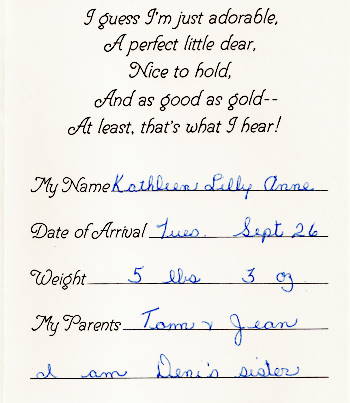 I guess I'm just adorable,
A perfect little dear,
Nice to hold,
And as good as gold--
At least, that's what I hear!
My Name Kathleen Lilly Anne
Date of Arrival Tues. Sept 26
Weight 5 lbs 3 oz
My Parents Tom & Jean
I am Deni's sister